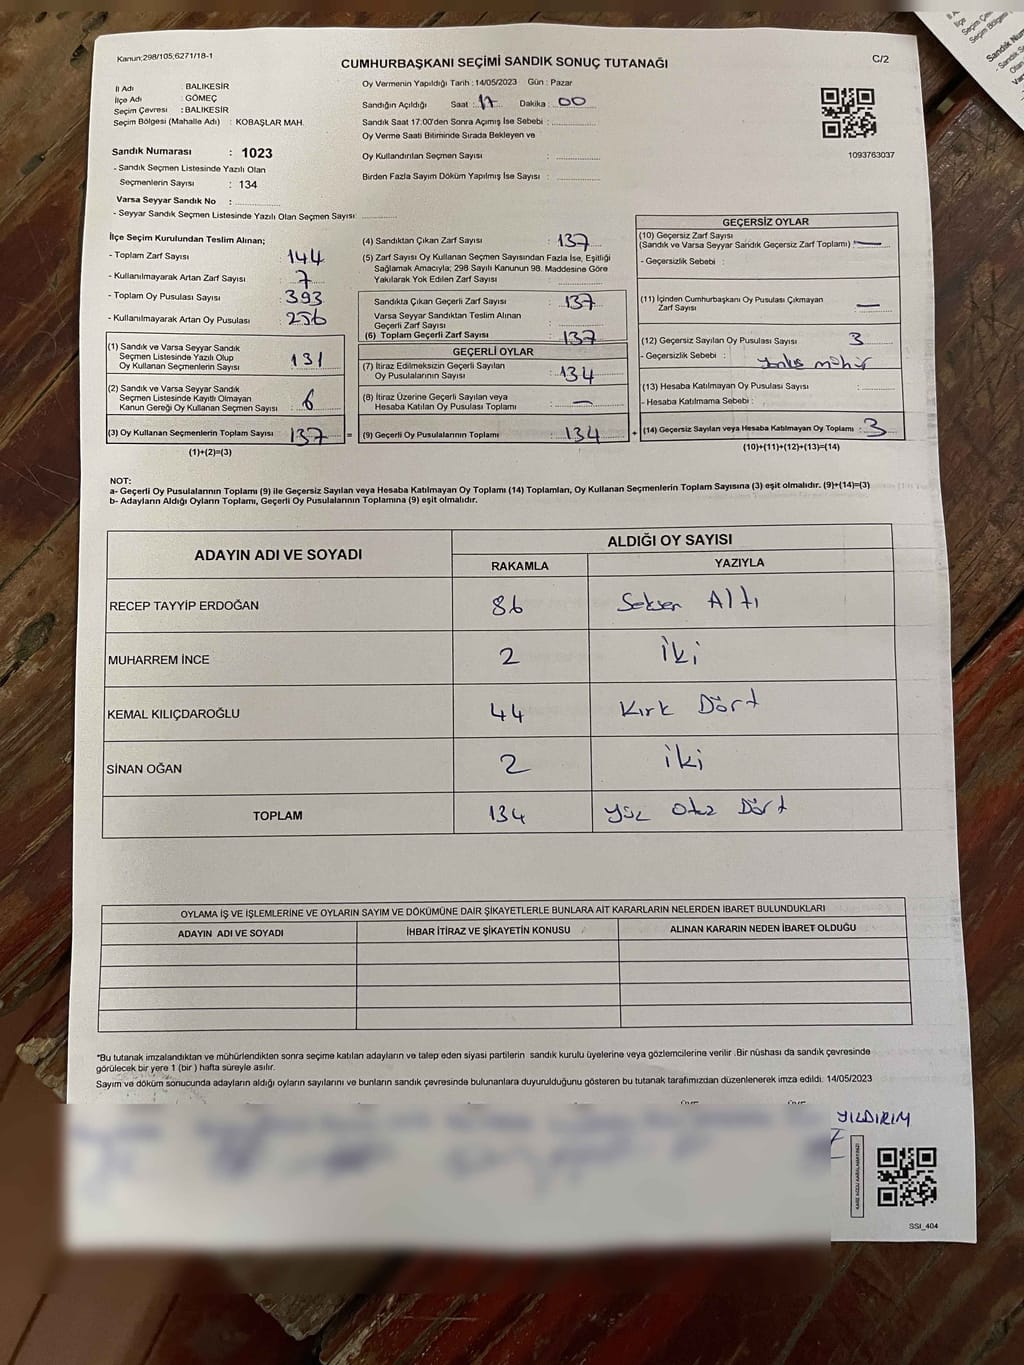 Kanun;298/105;6271/18-1
CUMHURBAŞKANI SEÇİMİ SANDIK SONUÇ TUTANAĞI
C/2
İl Adı : BALIKESİR
İlçe Adı : GÖMEÇ
Seçim Çevresi : BALIKESİR
Seçim Bölgesi (Mahalle Adı) : KOBAŞLAR MAH.
Sandık Numarası : 1023
- Sandık Seçmen Listesinde Yazılı Olan
Seçmenlerin Sayısı : 134
Varsa Seyyar Sandık No :
- Seyyar Sandık Seçmen Listesinde Yazılı Olan Seçmen Sayısı:
Oy Vermenin Yapıldığı Tarih : 14/05/2023 Gün : Pazar
Sandığın Açıldığı Saat : 17 Dakika : 00
Sandık Saat 17:00'den Sonra Açımış İse Sebebi :
Oy Verme Saati Bitiminde Sırada Bekleyen ve
Oy Kullandırılan Seçmen Sayısı :
Birden Fazla Sayım Döküm Yapılmış İse Sayısı :
1093763037
İlçe Seçim Kurulundan Teslim Alınan;
- Toplam Zarf Sayısı : 144
- Kullanılmayarak Artan Zarf Sayısı : 7
- Toplam Oy Pusulası Sayısı : 393
- Kullanılmayarak Artan Oy Pusulası : 256
(1) Sandık ve Varsa Seyyar Sandık
Seçmen Listesinde Yazılı Olup
Oy Kullanan Seçmenlerin Sayısı : 131
(2) Sandık ve Varsa Seyyar Sandık
Seçmen Listesinde Kayıtlı Olmayan
Kanun Gereği Oy Kullanan Seçmen Sayısı : 6
(3) Oy Kullanan Seçmenlerin Toplam Sayısı : 137 =
(1)+(2)=(3)
(4) Sandıktan Çıkan Zarf Sayısı : 137
(5) Zarf Sayısı Oy Kullanan Seçmen Sayısından Fazla İse, Eşitliği
Sağlamak Amacıyla; 298 Sayılı Kanunun 98. Maddesine Göre
Yakılarak Yok Edilen Zarf Sayısı :
Sandıkta Çıkan Geçerli Zarf Sayısı : 137
Varsa Seyyar Sandıktan Teslim Alınan
Geçerli Zarf Sayısı :
(6) Toplam Geçerli Zarf Sayısı : 137
GEÇERLİ OYLAR
(7) İtiraz Edilmeksizin Geçerli Sayılan
Oy Pusulalarının Sayısı : 134
(8) İtiraz Üzerine Geçerli Sayılan veya
Hesaba Katılan Oy Pusulası Toplamı : —
(9) Geçerli Oy Pusulalarının Toplamı : 134 +
GEÇERSİZ OYLAR
(10) Geçersiz Zarf Sayısı
(Sandık ve Varsa Seyyar Sandık Geçersiz Zarf Toplamı) : —
- Geçersizlik Sebebi :
(11) İçinden Cumhurbaşkanı Oy Pusulası Çıkmayan
Zarf Sayısı : —
(12) Geçersiz Sayılan Oy Pusulası Sayısı : 3
- Geçersizlik Sebebi : yanlış mühür
(13) Hesaba Katılmayan Oy Pusulası Sayısı :
- Hesaba Katılmama Sebebi :
(14) Geçersiz Sayılan veya Hesaba Katılmayan Oy Toplamı : 3
(10)+(11)+(12)+(13)=(14)
NOT:
a- Geçerli Oy Pusulalarının Toplamı (9) ile Geçersiz Sayılan veya Hesaba Katılmayan Oy Toplamı (14) Toplamları, Oy Kullanan Seçmenlerin Toplam Sayısına (3) eşit olmalıdır. (9)+(14)=(3)
b- Adayların Aldığı Oyların Toplamı, Geçerli Oy Pusulalarının Toplamına (9) eşit olmalıdır.
ADAYIN ADI VE SOYADI ALDIĞI OY SAYISI
RAKAMLA YAZIYLA
RECEP TAYYİP ERDOĞAN 86 Seksen Altı
MUHARREM İNCE 2 İki
KEMAL KILIÇDAROĞLU 44 Kırk Dört
SİNAN OĞAN 2 iki
TOPLAM 134 Yüz Otuz Dört
OYLAMA İŞ VE İŞLEMLERİNE VE OYLARIN SAYIM VE DÖKÜMÜNE DAİR ŞİKAYETLERLE BUNLARA AİT KARARLARIN NELERDEN İBARET BULUNDUKLARI
ADAYIN ADI VE SOYADI İHBAR İTİRAZ VE ŞİKAYETİN KONUSU ALINAN KARARIN NEDEN İBARET OLDUĞU
*Bu tutanak imzalandıktan ve mühürlendikten sonra seçime katılan adayların ve talep eden siyasi partilerin sandık kurulu üyelerine veya gözlemcilerine verilir .Bir nüshası da sandık çevresinde
görülecek bir yere 1 (bir ) hafta süreyle asılır.
Sayım ve döküm sonucunda adayların aldığı oyların sayılarını ve bunların sandık çevresinde bulunanlara duyurulduğunu gösteren bu tutanak tarafımızdan düzenlenerek imza edildi. 14/05/2023
YILDIRIM
SSI_404